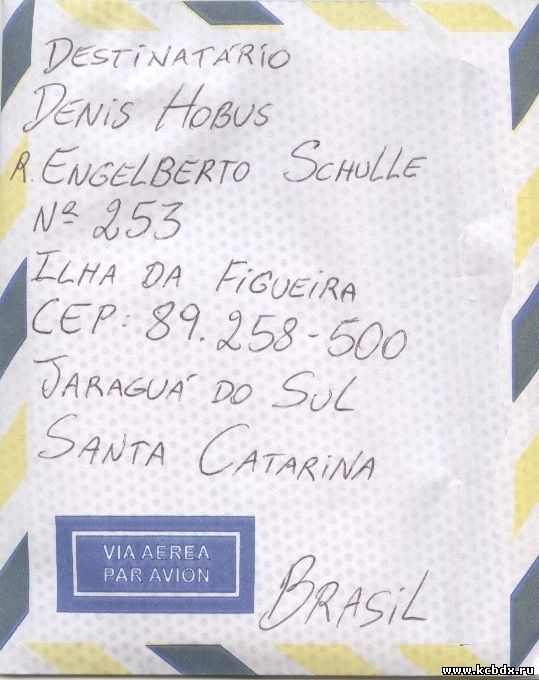 DESTINATÁRIO
DENIS HOBUS
R. ENGELBERTO SCHULLE
Nº 253
ILHA DA FIGUEIRA
CEP: 89.258-500
JARAGUÁ DO SUL
SANTA CATARINA
VIA AÉREA
PAR AVION
BRASIL
www.kcbdx.ru